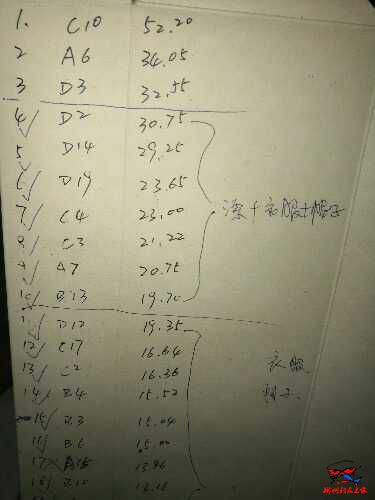 1. C10 52.20
2 A6 34.05
3 D3 32.55
4 D2 30.75
5 D14 29.25
6 D19 23.65
7 C4 23.00
8 C3 21.22
9 A7 20.75
10 B13 19.70
漂+衣服+帽子
11 D12 19.35
12 C17 16.64
13 C2 16.36
14 B4 15.52
15 B3 15.04
16 B6 15.00
17 13.96
18
衣服
帽子